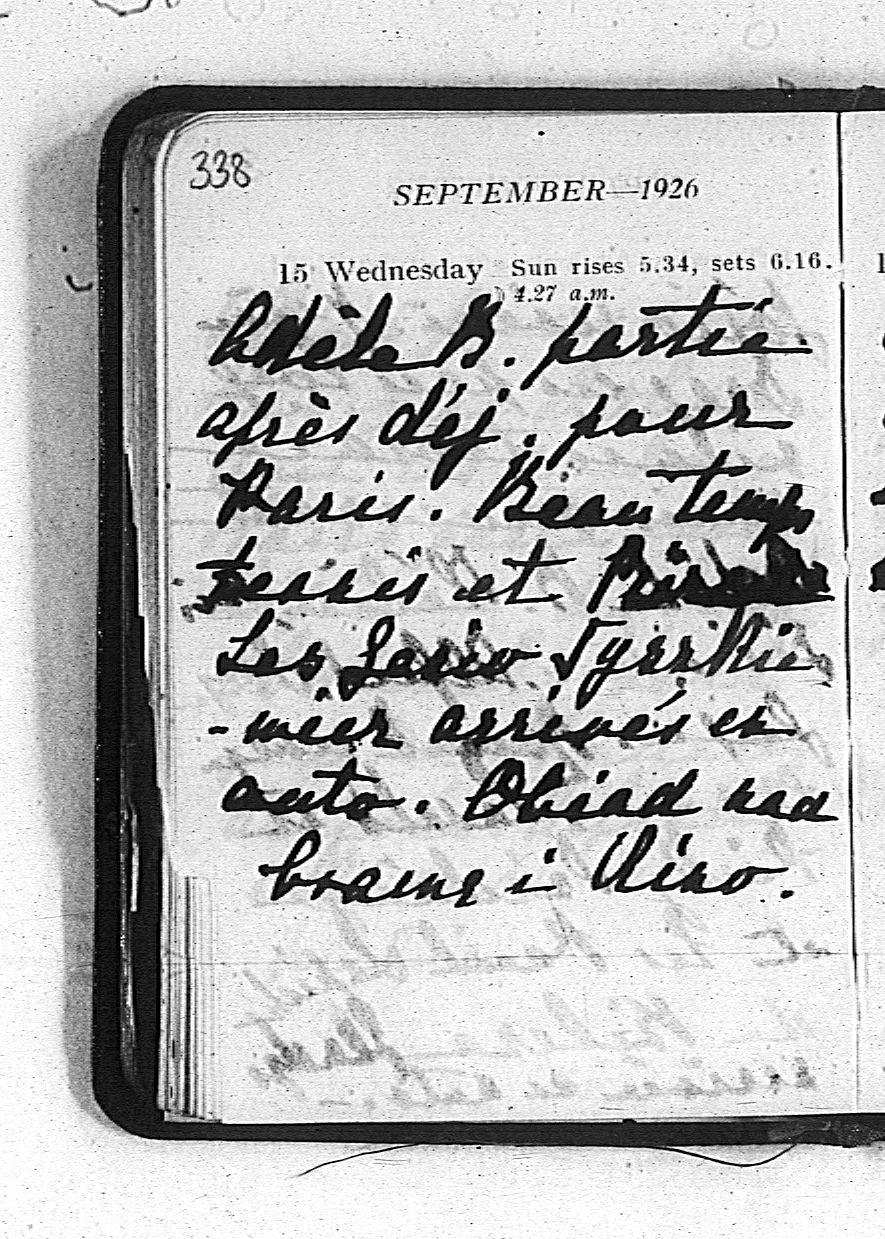 338
SEPTEMBER—1926
15 Wednesday Sun rises 5.34, sets 6.16.
4.27 a.m.
Adèle B. partie
après déj. pour
Paris. Beau temps
et
Les
arrivés en
auto. Obiad nad
i Kino.